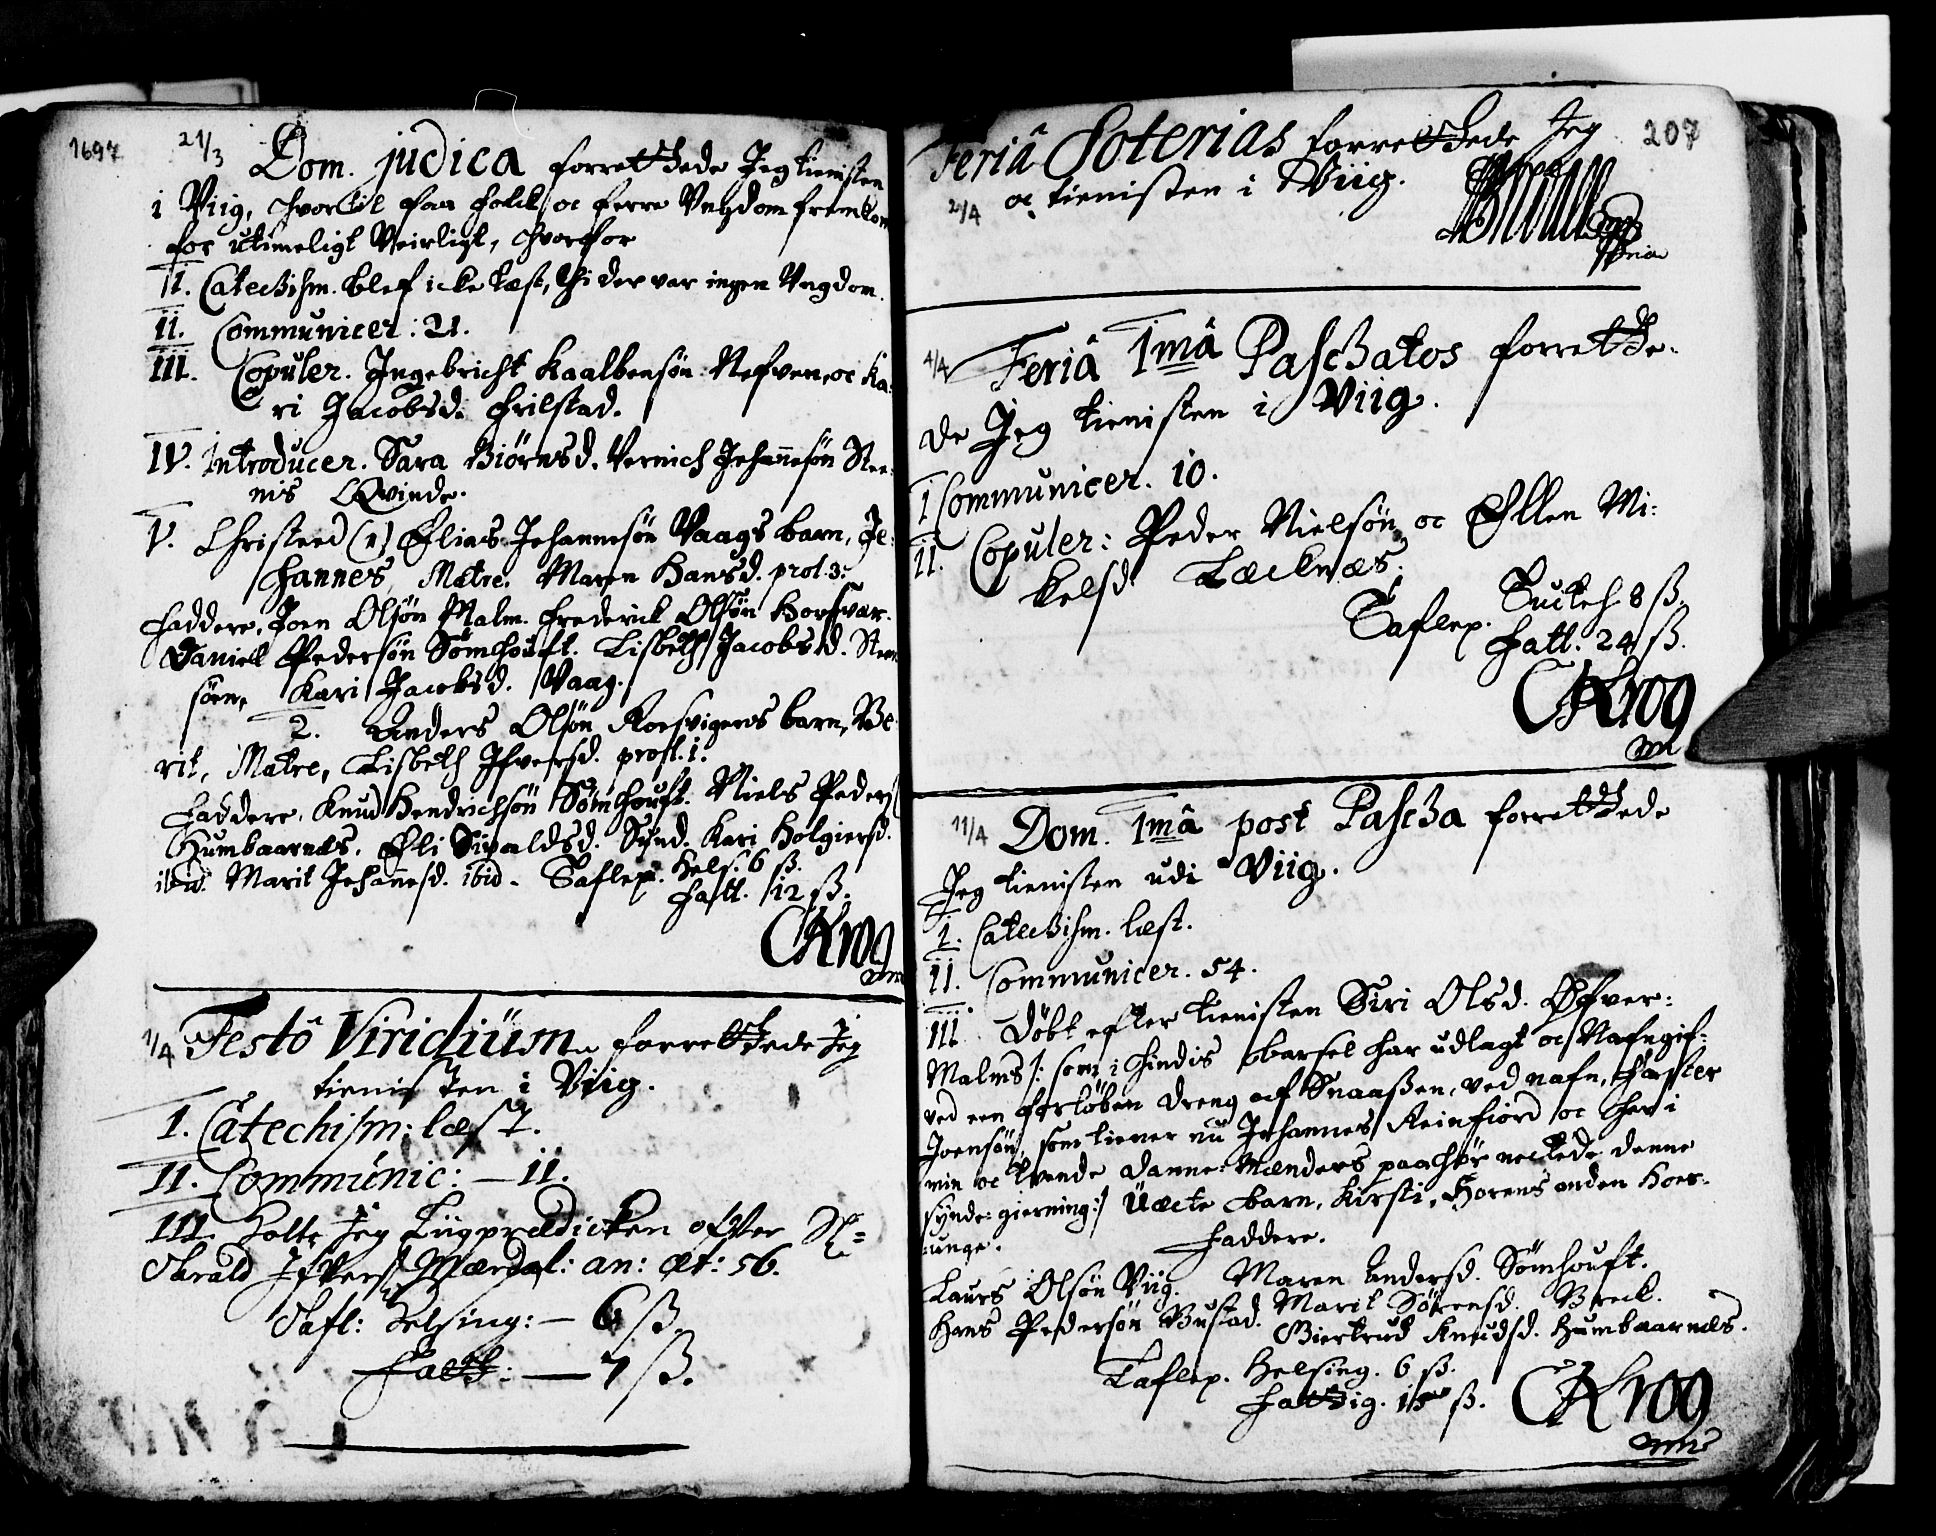 1697 21/3
Dom. judica forrettede Jeg tienisten
i Viig, hvortil faa folck oc ferre Ungdom fremkom
for utimeligt Veirligt, hvorfor
I. Catechism. blef icke læst, thi der var ingen Ungdom.
II. Communicer: 21.
III. Copuler. Ingebricht Kaalbensøn Nefven, oc Ka-
ri Jacobsd. Hilstad.
IV. Introducer. Sara Biørnsd. Vernich Johannesøn
Qvinde.
V. Christned (1) Elias Johannesøn Vaags barn, Jo-
hannes, Matre. Maren Hansd. prol. 3.
Faddere, Joen Olsøn Malm. Frederick Olsøn
Daniell Pedersøn Sømhouft. Lisbeth Jacobsd.
Kari Jacobsd. Vaag.
2. Anders Olsøn barn, Be-
rit, Matre, Lisbeth Ifversd. prol. 1.
Faddere. Knud Hendrichsøn Sømhouft. Niels Peders.
Humbaarnæs. Eli Sivaldsd. Sund. Kari Holgiersd.
ibid. Marit Johannesd. ibid. Taflep. Hels. 6 ß.
Fatt. 12 ß.
CKrog
mm
1/4 Festô Viridiüm forrettede Jeg
tienisten i Viig.
I. Catechism: læst.
II. Communic: — 11.
III. Holte Jeg Liigprædicken ofver Sl=
Harald Ifvers. an: æt: 56.
Tafl: Helsing: — 6 ß.
Fatt: — 7 ß.
207
Feriâ Soterias forrettede Jeg
2/4 oc tienisten i Viig.
4/4 Feriâ 1mâ Paschatos forrette-
de Jeg tienisten i Viig.
I Communicer. 10.
II. Copuler: Peder Nielsøn oc Ellen Mi-
kelsd. Læcknæs.
Taflep. 8 ß.
Fatt. 24 ß.
CKrog
mm
11/4 Dom. 1mâ post Pascha forrettede
Jeg tienisten udi Viig.
I. Catechism. læst.
II. Communicer. 54.
III. Døbt efter tienisten Siri Olsd. Øfver-
Malms /: som i hindis barsel har udlagt oc Nafngif-
ved een forløben dreng af Snaaßen, ved nafn,
Joensøn, som tiener nu Johannes Reinfiord oc her i
min oc tvende danne-Mænders paahør neckede denne
synde-gierning :/ Uæcte barn, Kirsti, Horens anden Hoer-
unge.
Faddere.
Laurs Olsøn Viig. Maren Andersd. Sømhouft.
Hans Pedersøn Bustad. Marit Sørensd. Breck.
Giertrud Knudsd. Humbaarnæs.
Taflep. Helsing. 6 ß.
Fattig. 15 ß.
CKrog
mm